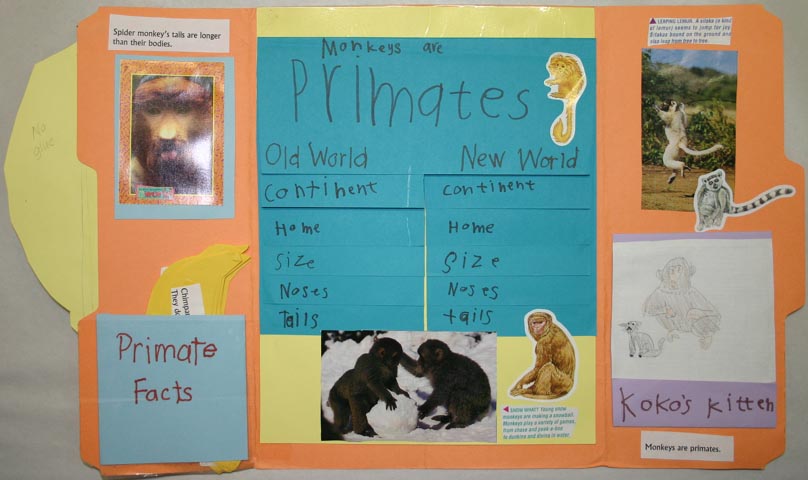 Spider monkey's tails are longer
than their bodies.
No
glue
Primate
Facts
Monkeys are
Primates
Old World
New World
Continent
Home
Size
Noses
Tails
continent
Home
Size
Noses
tails
SNOW WHAT? Young snow
monkeys are making a snowball.
Monkeys play a variety of games,
from chase and peek-a-boo
to dunking and diving in water.
LEAPING LEMUR. A sifaka (a kind
of lemur) seems to jump for joy.
Sifakas bound on the ground and
also leap from tree to tree.
Koko's kitten
Monkeys are primates.